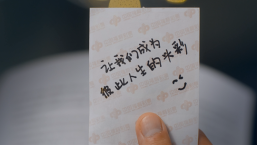 让我们成为
彼此人生的水彩